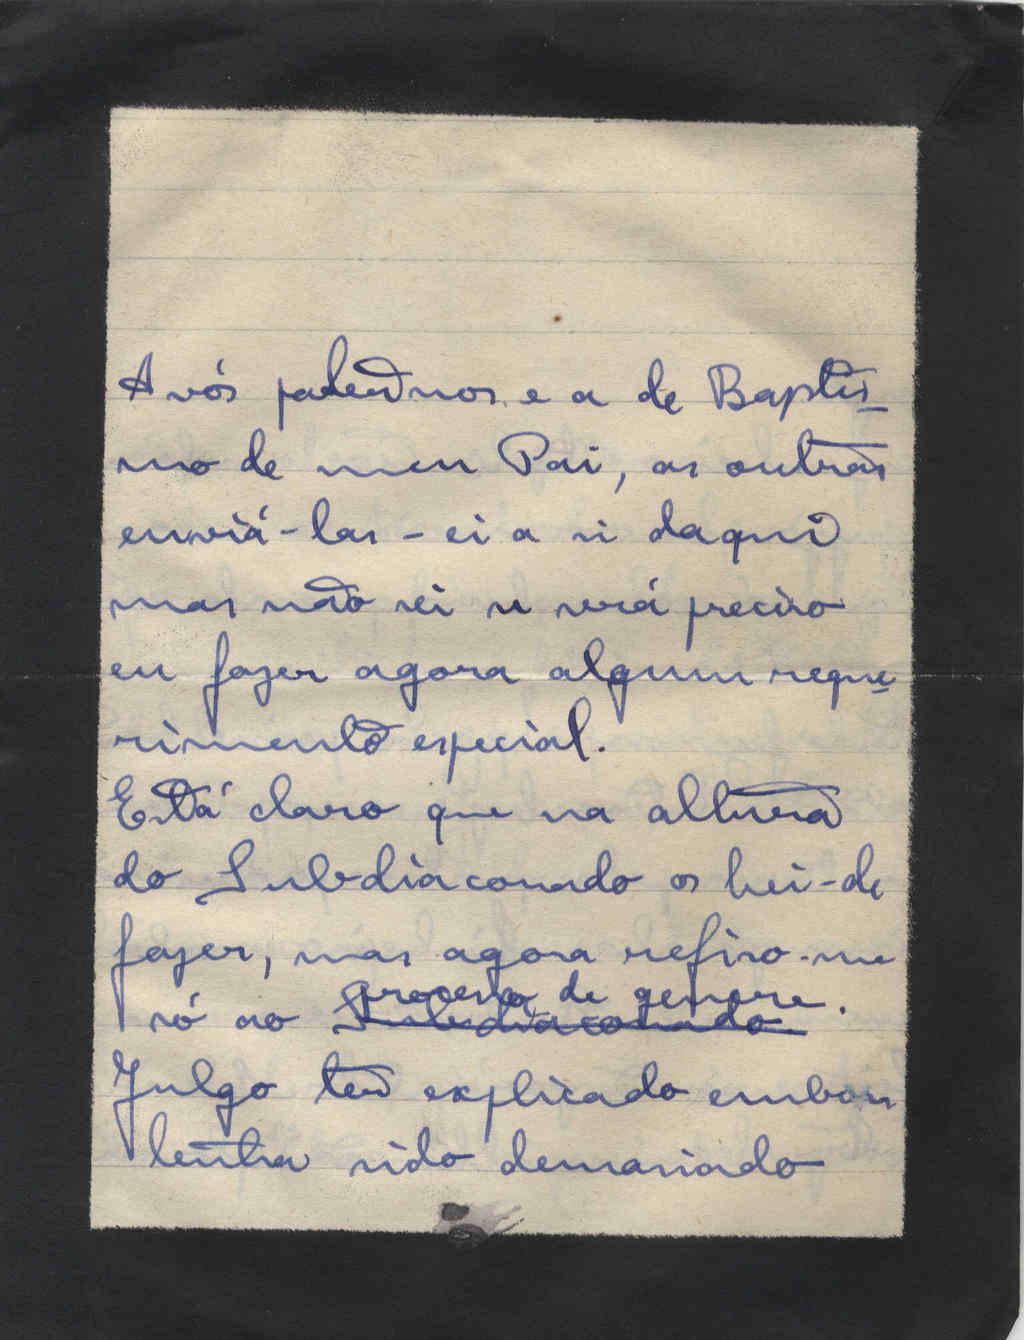 Avós paternos e a de Baptis-
mo de meu Pai, as outras
enviá-las-ei a si daqui
mas não sei se será preciso
eu fazer agora algum reque-
rimento especial.
Está claro que na altura
do Subdiaconado os hei-de
fazer, mas agora refiro-me
só ao Subdiaconado processo de genere.
Julgo ter explicado embora
tenha sido demasiado